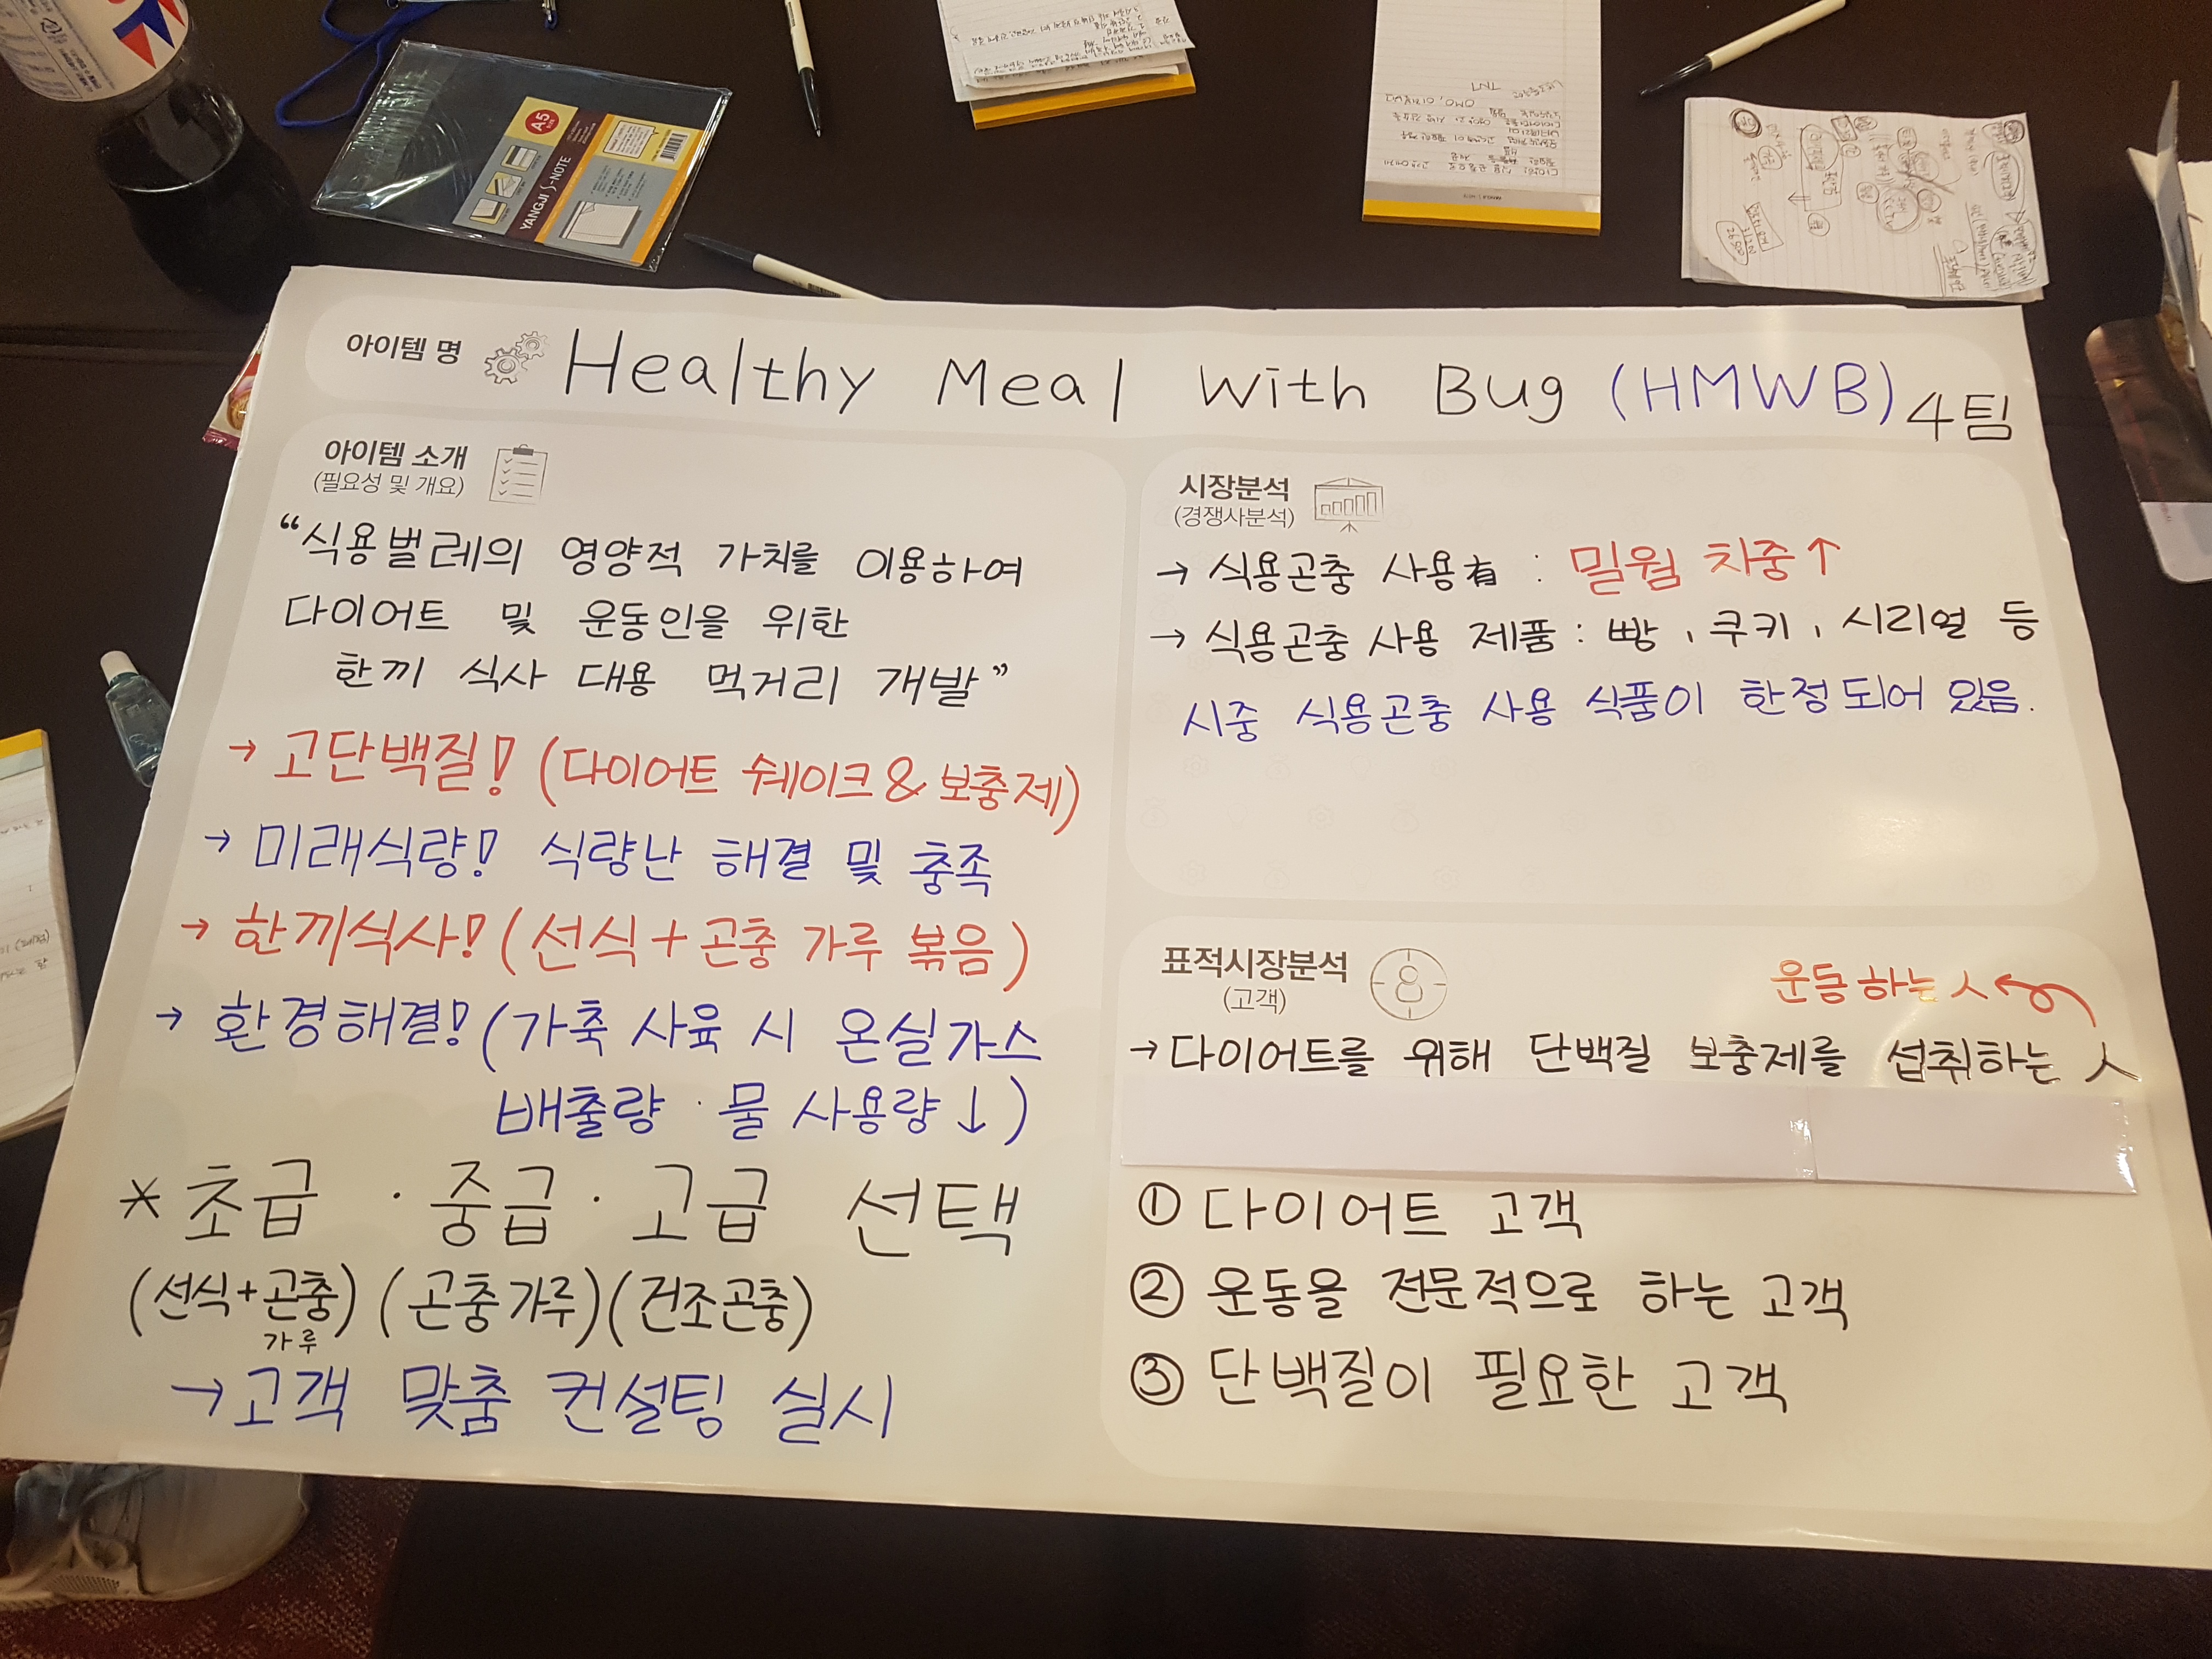 A5
YANGJI S-NOTE
아이템 명 Healthy Meal With Bug (HMWB) 4팀
아이템 소개
(필요성 및 개요)
“식용벌레의 영양적 가치를 이용하여
다이어트 및 운동인을 위한
한끼 식사 대용 먹거리 개발”
→ 고단백질! (다이어트 쉐이크 & 보충제)
→ 미래식량! 식량난 해결 및 충족
→ 한끼식사! (선식 + 곤충 가루 볶음)
→ 환경해결! (가축 사육 시 온실가스
배출량 · 물 사용량 ↓)
* 초급 · 중급 · 고급 선택
(선식+곤충) (곤충가루) (건조곤충)
가루
→ 고객 맞춤 컨설팅 실시
시장분석
(경쟁사분석)
→ 식용곤충 사용有 : 밀웜 치중↑
→ 식용곤충 사용 제품 : 빵, 쿠키, 시리얼 등
시중 식용곤충 사용 식품이 한정되어 있음.
표적시장분석
(고객)
운동하는 人
→ 다이어트를 위해 단백질 보충제를 섭취하는 人
① 다이어트 고객
② 운동을 전문적으로 하는 고객
③ 단백질이 필요한 고객